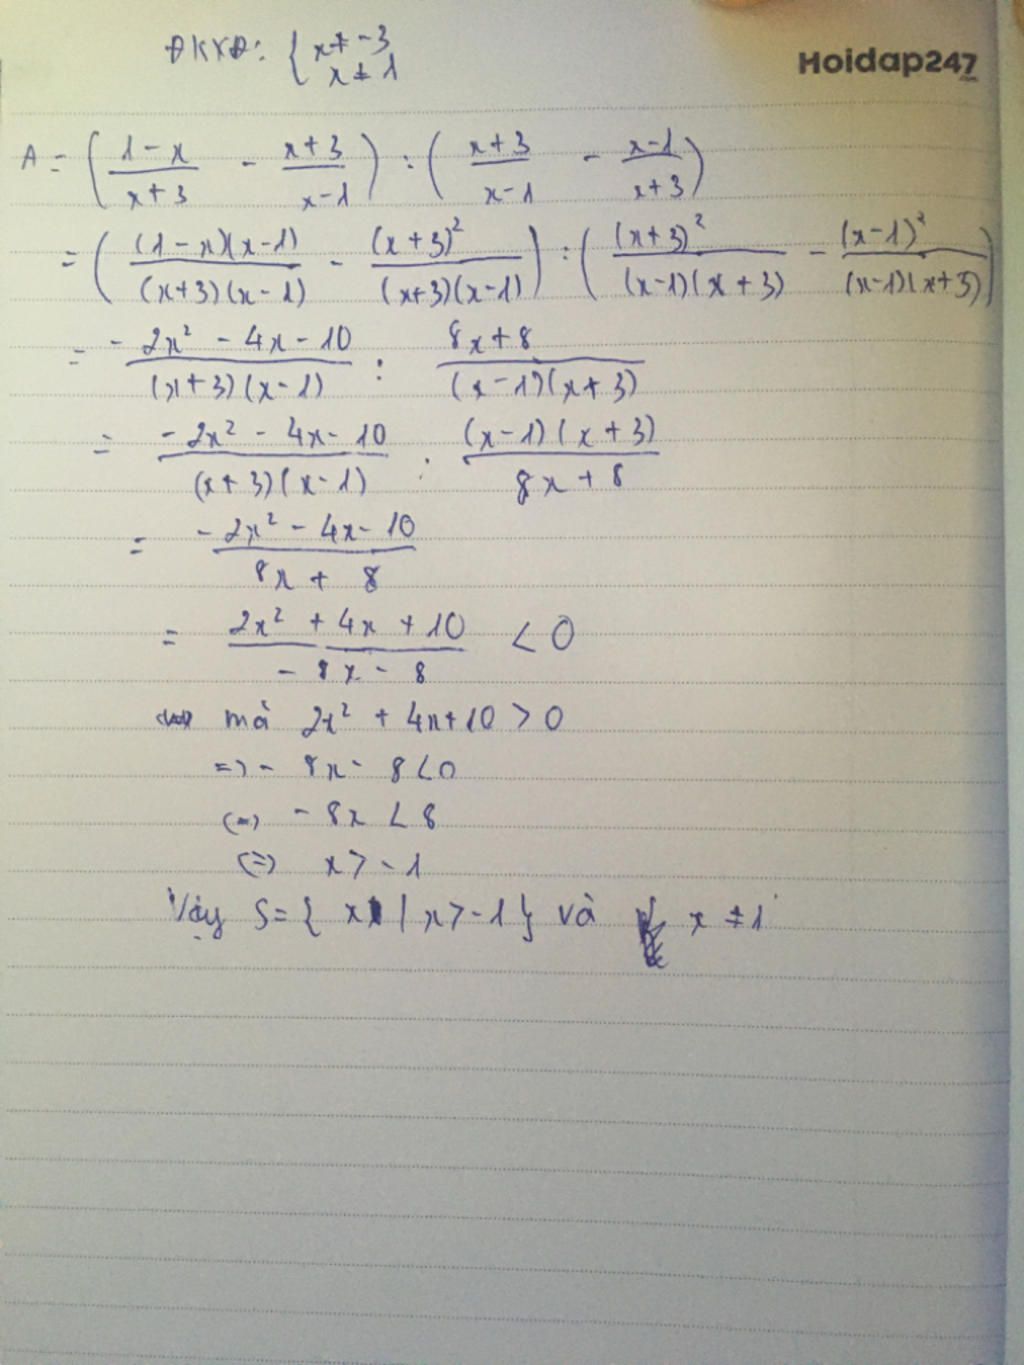 ĐKXĐ: { x ≠ -3
x ≠ 1
Hoidap247
.com
A = ( (1-x)/(x+3) - (x+3)/(x-1) ) : ( (x+3)/(x-1) - (x-1)/(x+3) )
= ( (1-x)(x-1)/((x+3)(x-1)) - (x+3)²/((x+3)(x-1)) ) : ( (x+3)²/((x-1)(x+3)) - (x-1)²/((x-1)(x+3)) )
= (-2x² - 4x - 10)/((x+3)(x-1)) : (8x+8)/((x-1)(x+3))
= (-2x² - 4x - 10)/((x+3)(x-1)) . ((x-1)(x+3))/(8x+8)
= (-2x² - 4x - 10)/(8x + 8)
= (2x² + 4x + 10)/(-8x - 8) < 0
mà 2x² + 4x + 10 > 0
=> - 8x - 8 < 0
(=) - 8x < 8
(=) x > -1
Vậy S = { x | x > -1 } và x ≠ 1